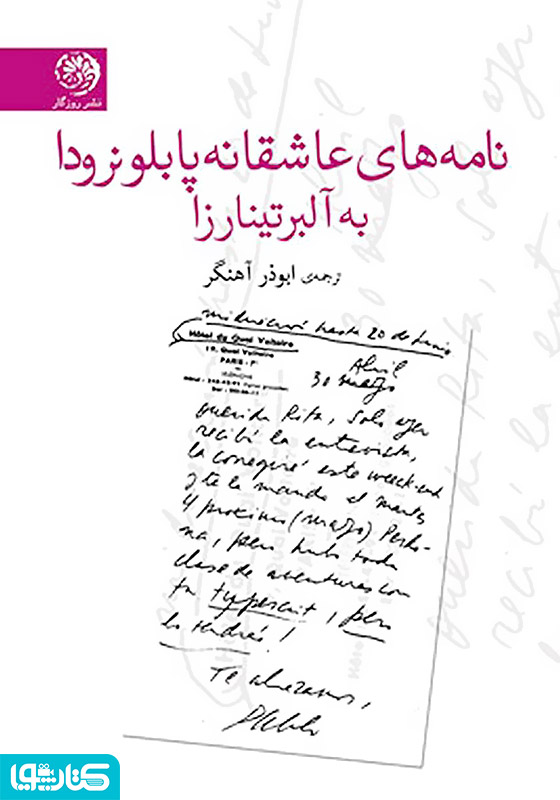 نشر روزگار
نامه‌های عاشقانه پابلو نرودا
به آلبرتینا رزا
ترجمه‌ی ابوذر آهنگر
hasta 20 de Junio
Hôtel du Quai Voltaire
19, Quai Voltaire
PARIS - 7e
Abril
30
querida Rita, solo ayer
recibí la entrevista,
la corregiré este week-end
y te la mando el martes
4 próximo (marzo) Perdo-
na, pero hubo toda
clase de aventuras con
tu typescrit, pero
lo tendrás!
Te abrazamos,
Pablo
کتابشهر